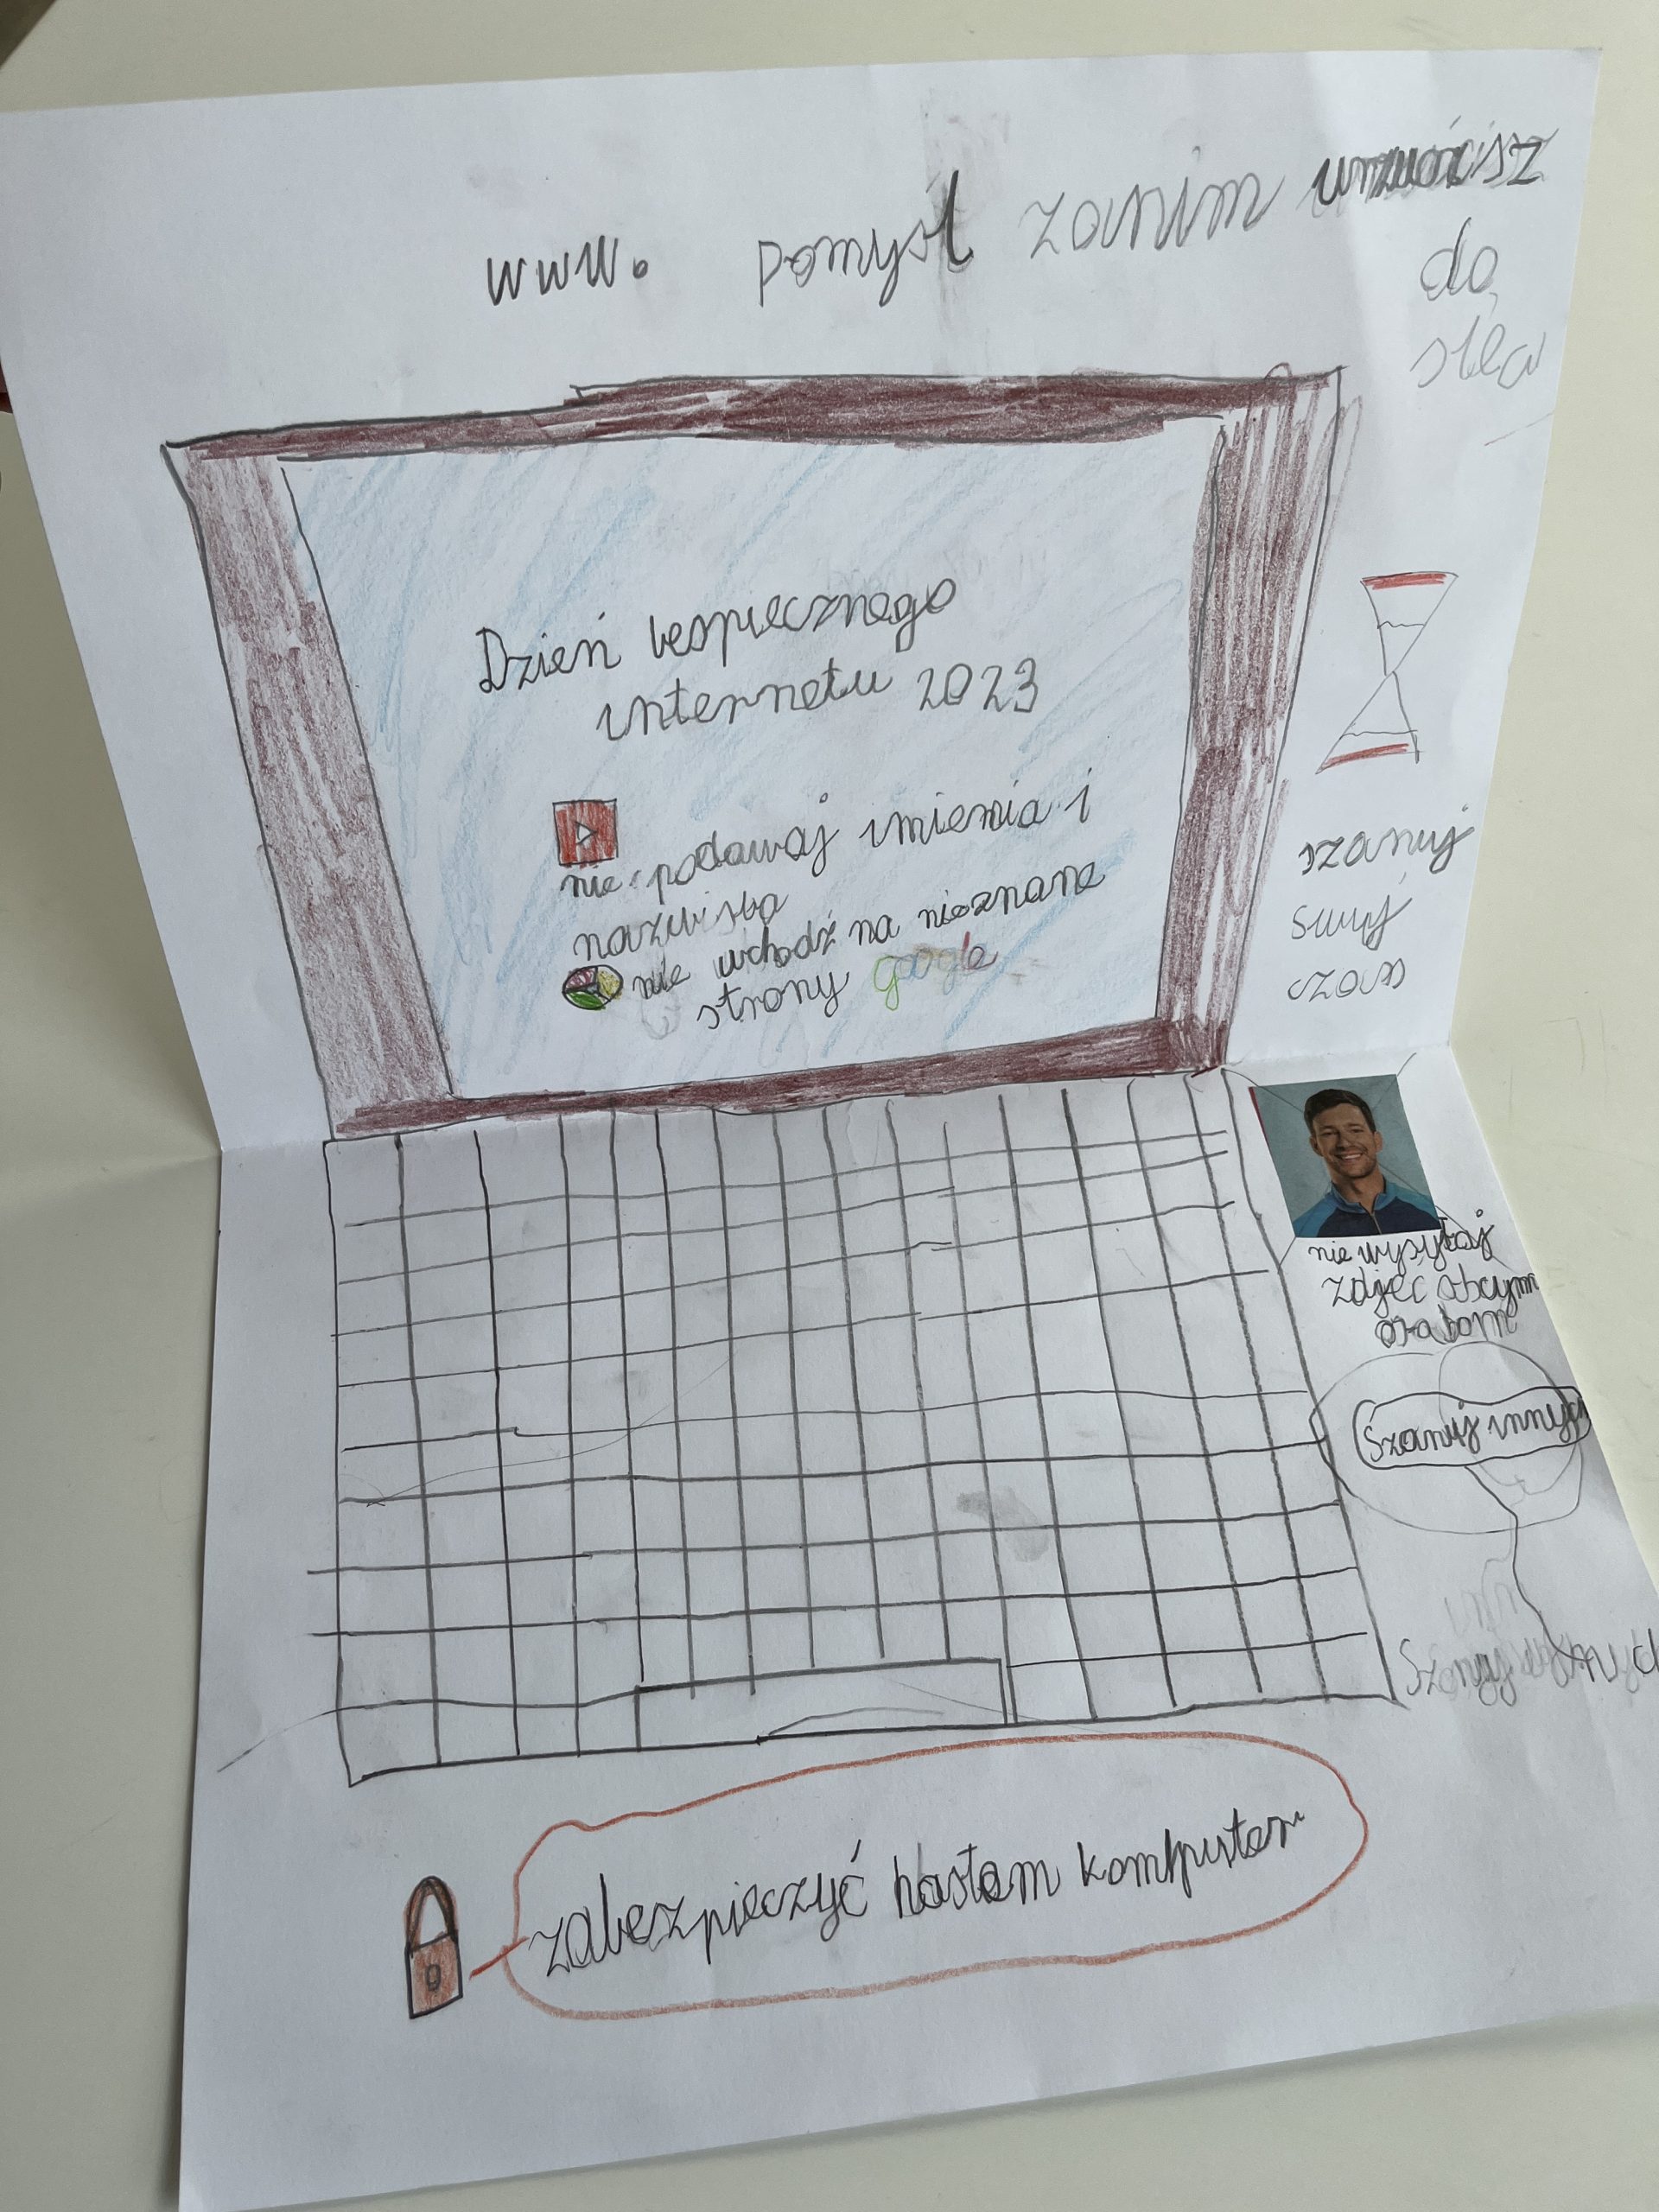 www. pomyśl zanim wrzucisz
do
Dzień bespiecznego
internetu 2023
nie podawaj imienia i
nazwiska
nie wchodź na nieznane
strony google
szanuj
swuj
czas
nie wysyłaj
zdjęć obcym
osobom
Szanuj innych
Szanuj innych
zabezpieczyć hasłem komputer